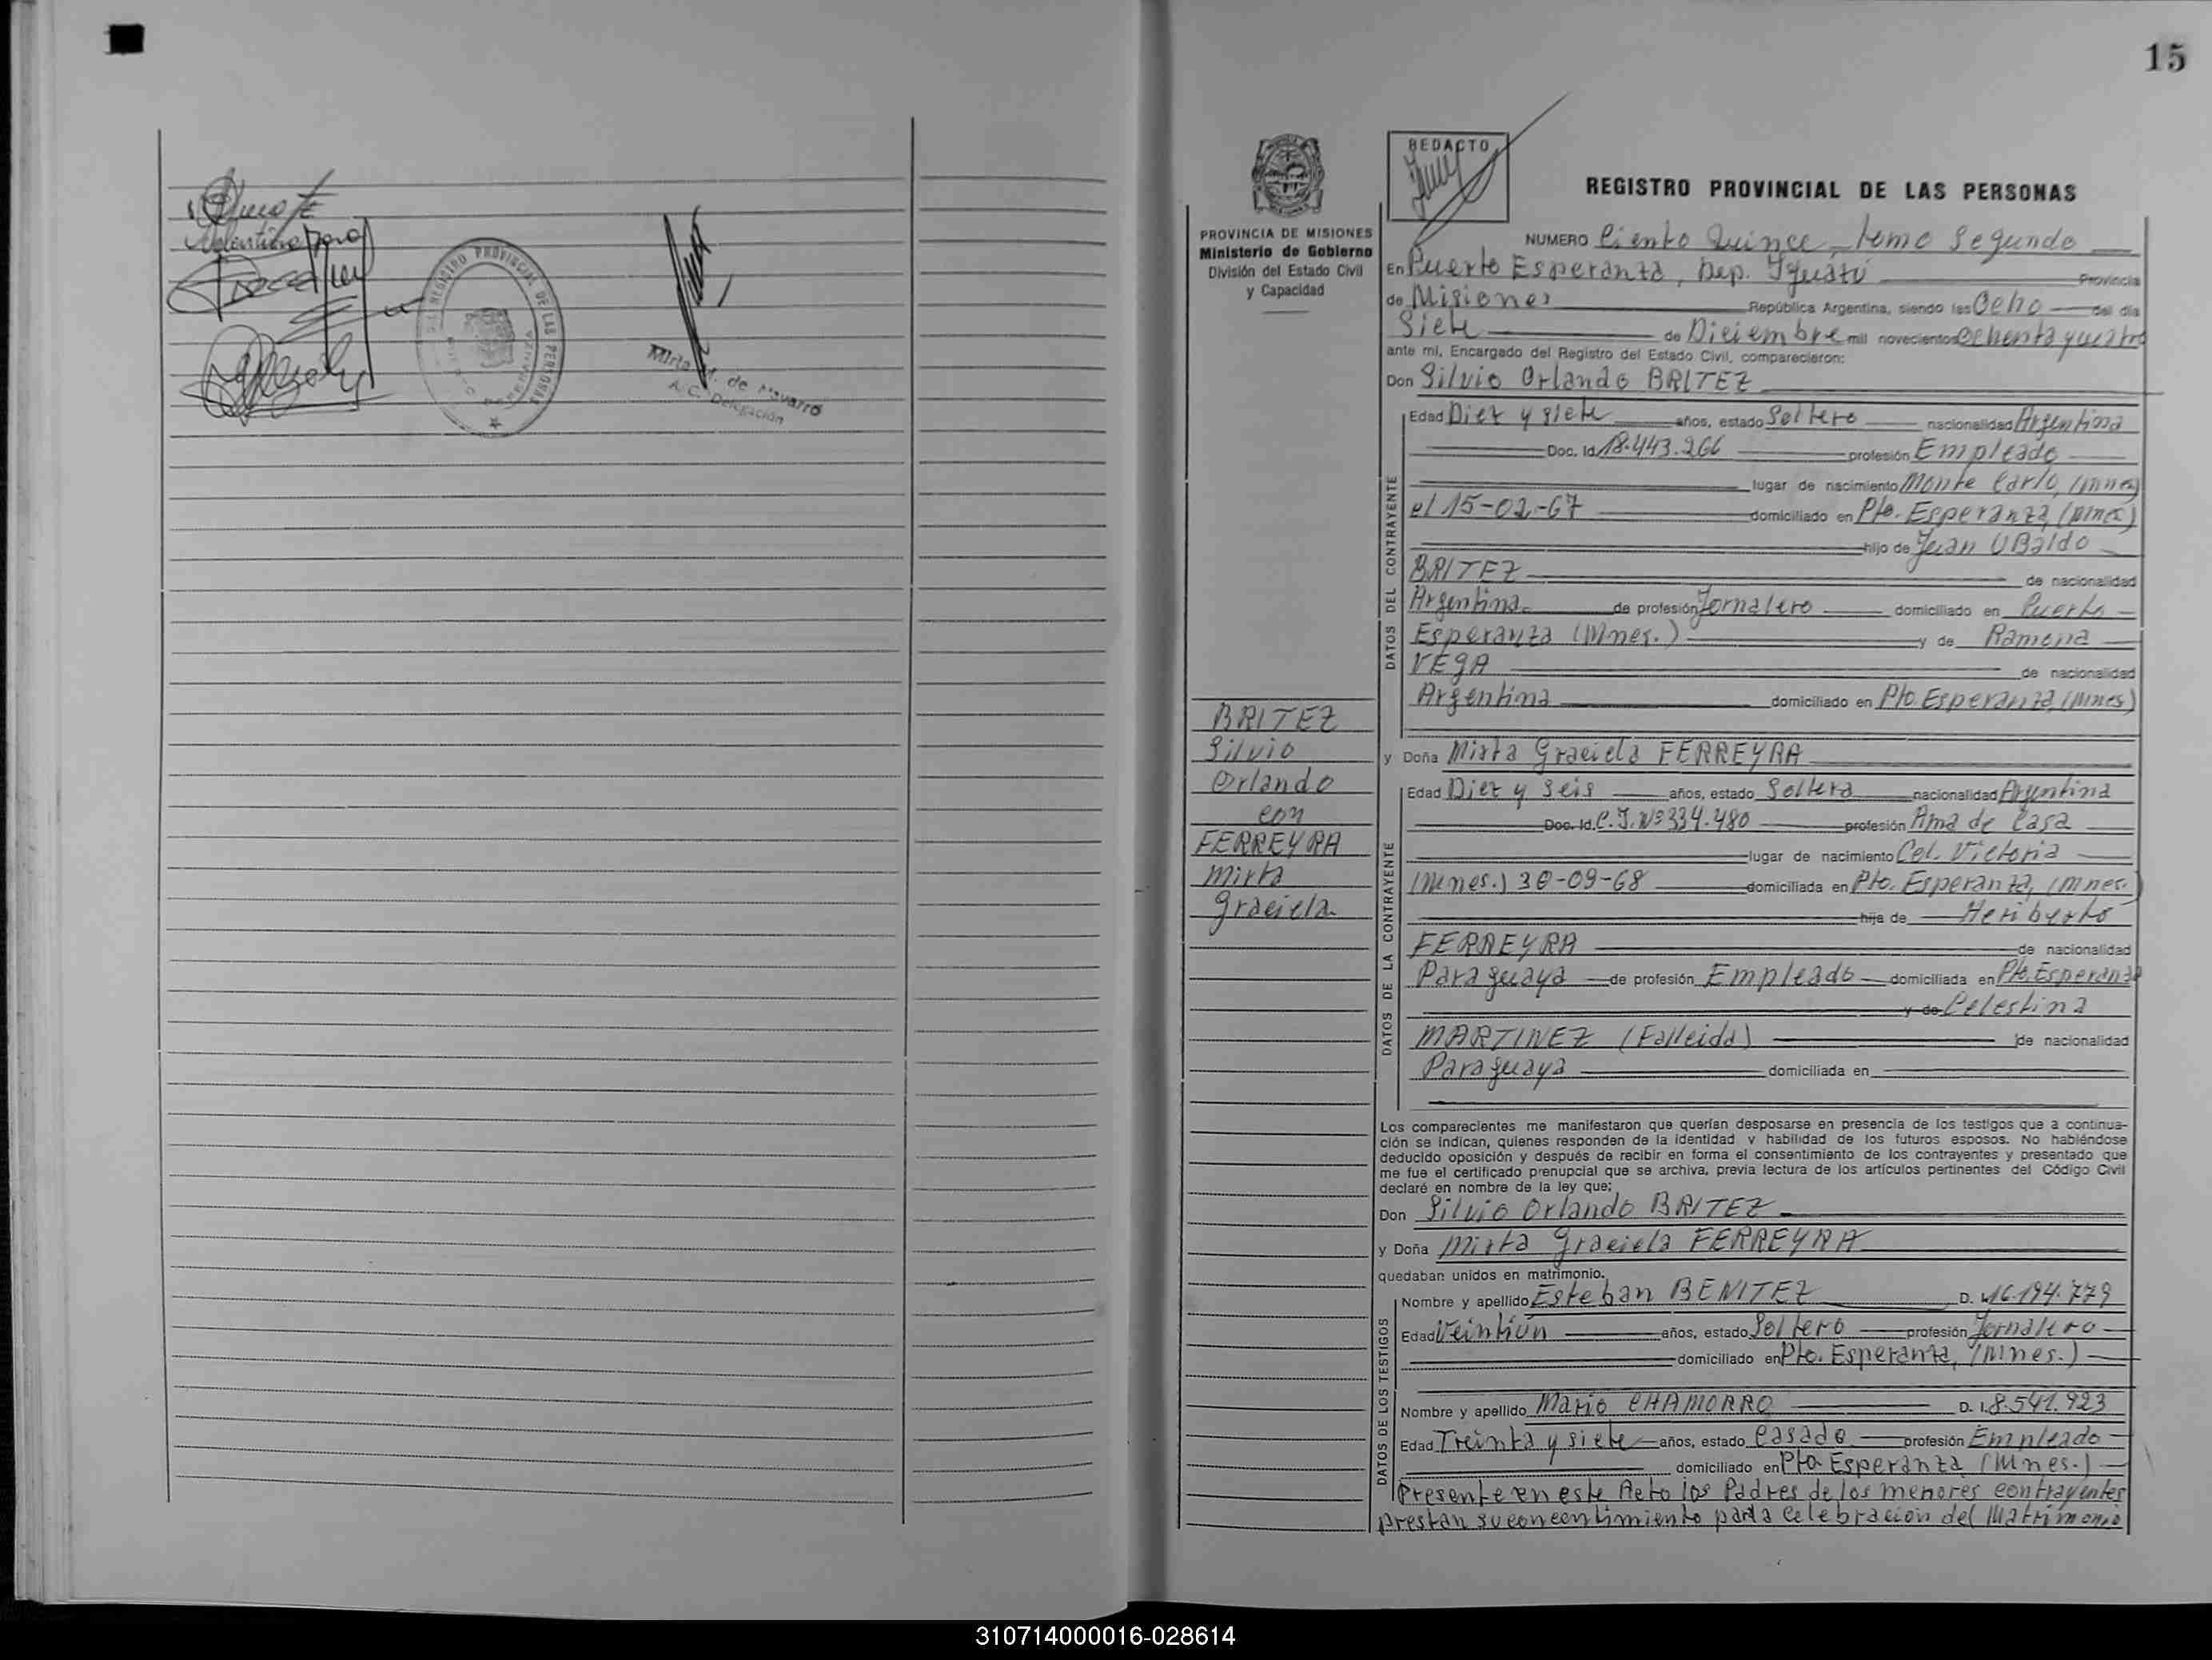 15
Valentina
REGISTRO PROVINCIAL DE LAS PERSONAS
Mirta M. de Navarro
A/C. Delegación
REDACTO
PROVINCIA DE MISIONES
Ministerio de Gobierno
División del Estado Civil
y Capacidad
REGISTRO PROVINCIAL DE LAS PERSONAS
NUMERO Ciento Quince, tomo Segundo
En Puerto Esperanza, Dep. Iguazú Provincia
de Misiones República Argentina, siendo las Ocho del día
Siete de Diciembre mil novecientos ochenta y cuatro
ante mi, Encargado del Registro del Estado Civil, comparecieron:
Don Silvio Orlando BRITEZ
DATOS DEL CONTRAYENTE
Edad Diez y siete años, estado Soltero nacionalidad Argentina
Doc. Id. 18.443.266 profesión Empleado
lugar de nacimiento Monte Carlo, (Mnes)
el 15-02-67 domiciliado en Pto. Esperanza, (Mnes)
hijo de Juan UBaldo
BRITEZ de nacionalidad
Argentina de profesión Jornalero domiciliado en Puerto
Esperanza (Mnes.) y de Ramona
VEGA de nacionalidad
Argentina domiciliado en Pto. Esperanza, (Mnes)
BRITEZ
Silvio
Orlando
con
FERREYRA
Mirta
Graciela
y Doña Mirta Graciela FERREYRA
DATOS DE LA CONTRAYENTE
Edad Diez y seis años, estado Soltera nacionalidad Argentina
Doc. Id. C.I. Nº 334.480 profesión Ama de Casa
lugar de nacimiento Col. Victoria
(Mnes.) 30-09-68 domiciliada en Pto. Esperanza, (Mnes.)
hija de Heriberto
FERREYRA de nacionalidad
Paraguaya de profesión Empleado domiciliada en Pto. Esperanza
y de Celestina
MARTINEZ (Falleida) de nacionalidad
Paraguaya domiciliada en
Los comparecientes me manifestaron que querían desposarse en presencia de los testigos que a continua-
ción se indican, quienes responden de la identidad y habilidad de los futuros esposos. No habiéndose
deducido oposición y después de recibir en forma el consentimiento de los contrayentes y presentado que
me fue el certificado prenupcial que se archiva, previa lectura de los artículos pertinentes del Código Civil
declaré en nombre de la ley que;
Don Silvio Orlando BRITEZ
y Doña Mirta Graciela FERREYRA
quedaban unidos en matrimonio.
DATOS DE LOS TESTIGOS
Nombre y apellido Esteban BENITEZ D. I. 16.194.779
Edad Veintiún años, estado Soltero profesión Jornalero
domiciliado en Pto. Esperanza, (Mnes.)
Nombre y apellido Mario CHAMORRO D. I. 8.541.923
Edad Treinta y siete años, estado Casado profesión Empleado
domiciliado en Pto Esperanza (Mnes.)
Presente en este Acto los Padres de los menores contrayentes
prestan su concentimiento para celebración del Matrimonio
310714000016-028614